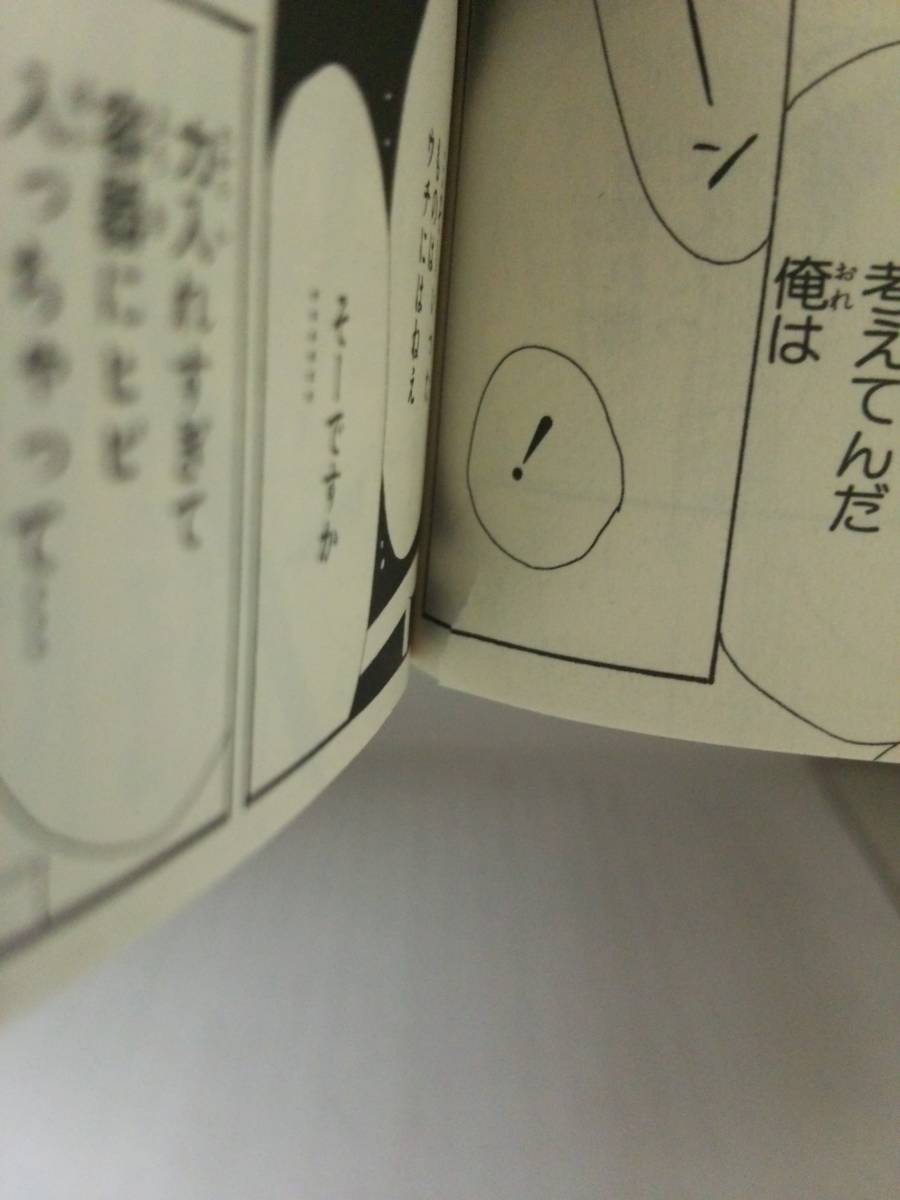 ーン
考えてんだ
俺は
おれ
！
ウチにはねえ
そーですか
……
力入れすぎて
容器にヒビ
入っちゃって…